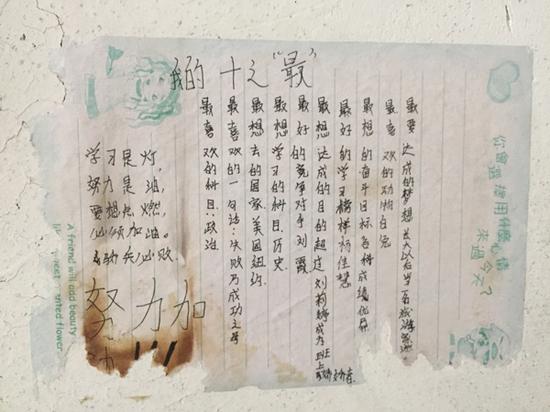 我的十之“最”
最要达成的梦想长大以后当
最喜欢的动物白兔
最想的奋斗目标各科成绩优异
最好的学习榜样杨佳慧
最想达成的目的超过刘莉婷成为班上
最好的竞争对手刘霞
最想学习的科目:历史
最想去的国家美国纽约
最喜欢的一句话:失败乃成功之母
最喜欢的科目:政治
学习是灯,
努力是油,
要想点燃,
必须加油。
骄兵必败
努力加
油!!!
A friend will add beauty